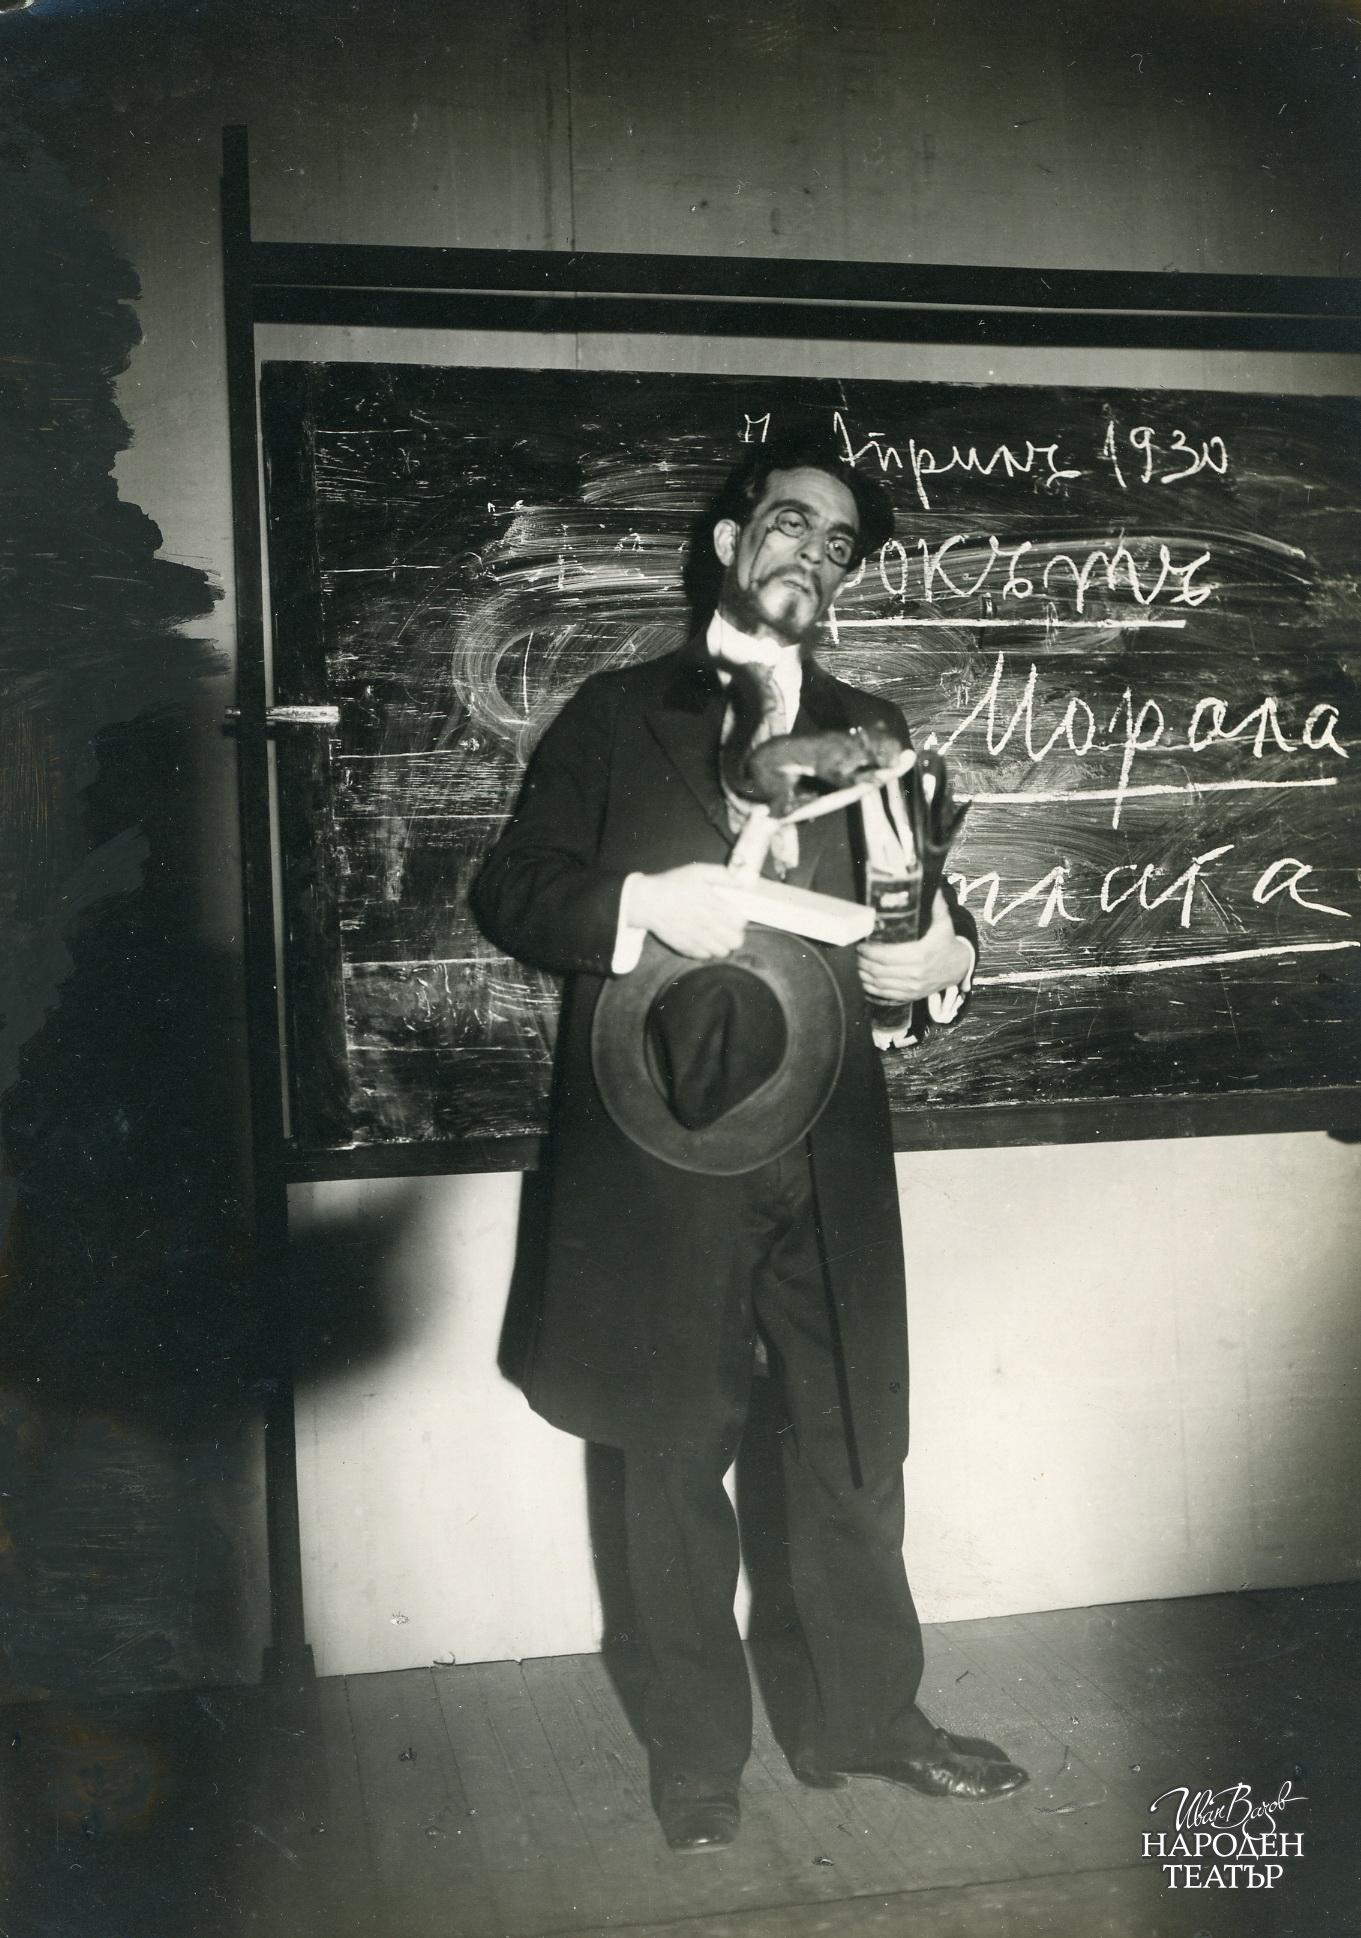 Априлъ 1930
рокътъ
Морала
плаⲧа
Иван Вазов
НАРОДЕН
ТЕАТЪР